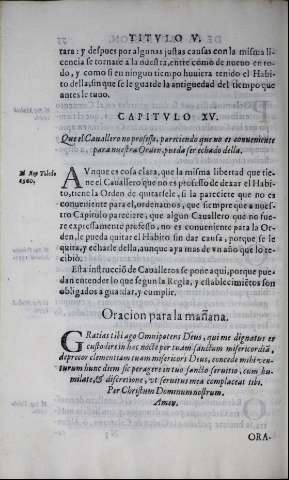 TITVLO V.
tara: y despues por algunas justas causas con la misma li-
cencia se tornare à la nuestra, entre como de nueuo en to-
do, y como si en ningun tiempo huuiera tenido el Habi-
to della, sin que se le guarde la antiguedad del tiempo que
antes le tuuo.
CAPITVLO XV.
Que el Cauallero no professo, pareciendo que no es conueniente
para nuestra Orden, pueda ser echado della.
R Rey Toledo
1560.
AVnque es cosa clara, que la misma libertad que tie-
ne el Cauallero que no es professo de dexar el Habi-
to, tiene la Orden de quitarsele, si la pareciere que no es
conueniente para el, ordenamos, que siempre que a nues-
tro Capitulo pareciere, que algun Cauallero que no fue-
re expressamente professo, no es conueniente para la Or-
den, le pueda quitar el Habito sin dar causa, porque se le
quita, y echarle della, aunque aya mas de vn año que lo re-
cibiò.
Esta instrucciõ de Caualleros se pone aqui, porque pue-
dan entender lo que segun la Regla, y establecimiẽtos son
obligados a guardar, y cumplir.
Oracion para la mañana.
GRatias tibi ago Omnipotens Deus, qui me dignatus es
custodire in hac nocte per tuam sanctam misericordiã,
deprecor clementiam tuam misericors Deus, concede mihi ven-
turum hunc diem sic peragere in tuo sancto seruitio, cum hu-
militate, & discretione, vt seruitus mea complaceat tibi.
Per Christum Dominum nostrum.
Amen.
ORA-